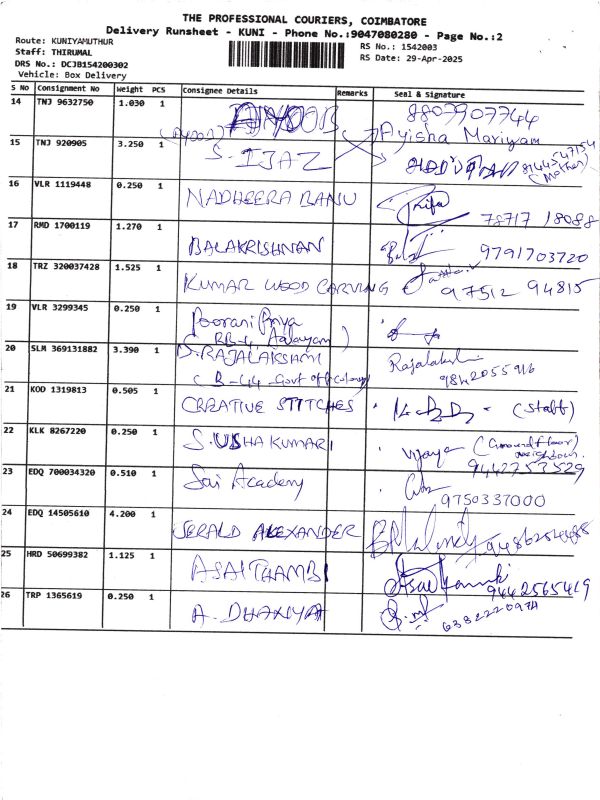 THE PROFESSIONAL COURIERS, COIMBATORE
Delivery Runsheet - KUNI - Phone No.:9047080280 - Page No.:2
Route: KUNIYAMUTHUR
Staff: THIRUMAL
DRS No.: DCJB154200302
Vehicle: Box Delivery
RS No.: 1542003
RS Date: 29-Apr-2025
S No Consignment No Weight PCS Consignee Details Remarks Seal & Signature
14 TNJ 9632750 1.030 1 8807907744
Ayisha Mariyam
15 TNJ 920905 3.250 1 S. IJAZ 8144547154
(Mother)
16 VLR 1119448 0.250 1 NADHEERA BANU
78717 18088
17 RMD 1700119 1.270 1 BALAKRISHNAN 9791703720
18 TRZ 320037428 1.525 1 KUMAR WOOD CARVING 97512 94815
19 VLR 3299345 0.250 1 Poorani Priya
20 SLM 369131882 3.390 1 D. RAJALAKSHMI Rajalakshmi
9842055916
21 KOD 1319813 0.505 1 CREATIVE STITCHES (staff)
22 KLK 8267220 0.250 1 S. USHA KUMARI Vijaya (Ground floor)
9442753529
23 EDQ 700034320 0.510 1 Sai Academy
9750337000
24 EDQ 14505610 4.200 1 JERALD ALEXANDER
25 HRD 50699382 1.125 1 ASAITHAMBI
9442565419
26 TRP 1365619 0.250 1 A. DHANYA
6382220974